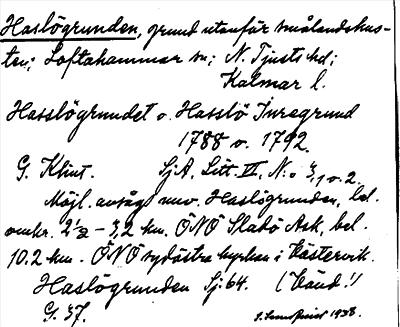 Haslögrunden, grund utanför smålandskus-
ten; Loftahammar sn; N. Tjusts hd;
Kalmar l.
Hasslögrundet o. Hasslö Inregrund
1788 o. 1792.
G. Klint. SjA, Litt. III, N:o 3, 1 o. 2.
Möjl. avsåg nuv. Haslögrunden, bel.
omkr. 2½ – 3,2 km. ÖNÖ Sladö Ask, bel.
10.2 km. ÖNÖ sydöstra kyrkan i Västervik.
Haslögrunden Sj: 64. (Känd!)
G. 37. 1938.